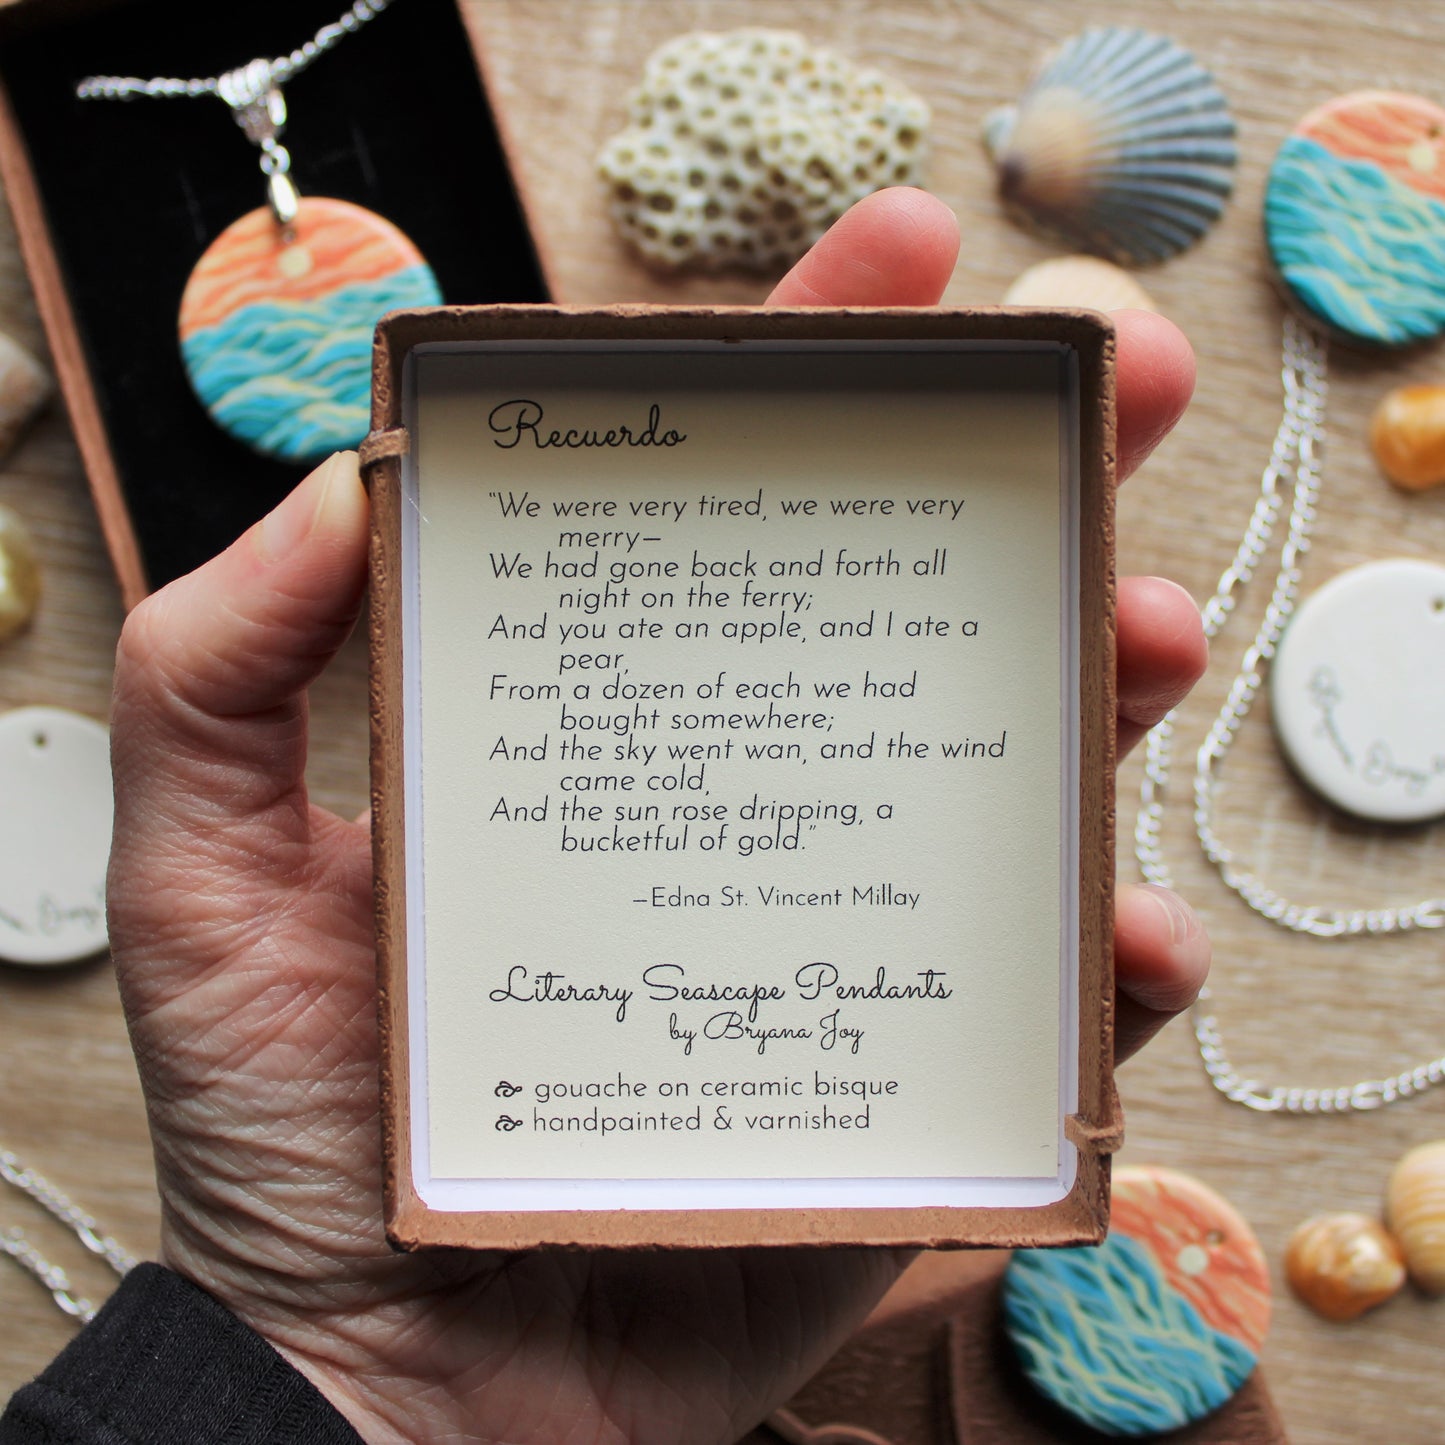 Recuerdo
"We were very tired, we were very
merry—
We had gone back and forth all
night on the ferry;
And you ate an apple, and I ate a
pear,
From a dozen of each we had
bought somewhere;
And the sky went wan, and the wind
came cold,
And the sun rose dripping, a
bucketful of gold."
—Edna St. Vincent Millay
Literary Seascape Pendants
by Bryana Joy
gouache on ceramic bisque
handpainted & varnished